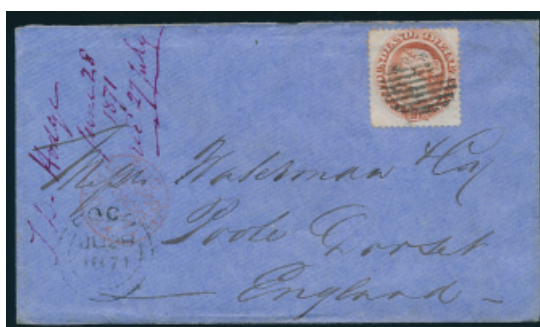 Hodge
June 28
1871
rec'd 27 July
Messrs Waterman & Co
Poole Dorset
England
FOGO
JU 28
1871